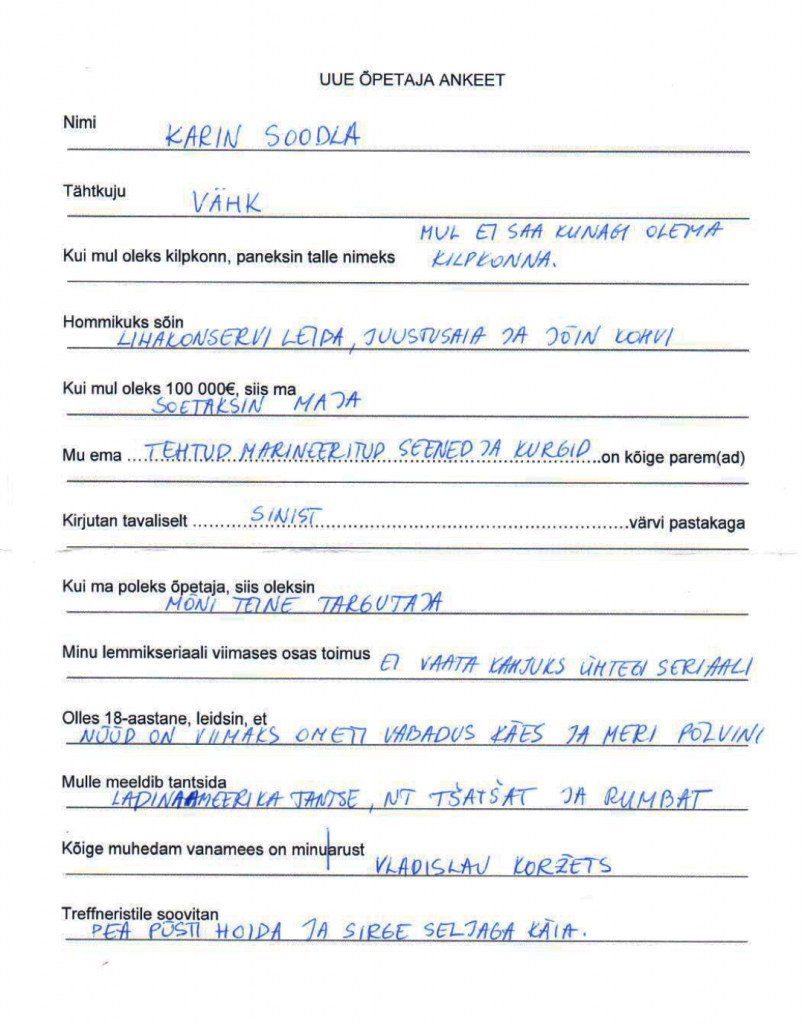 UUE ÕPETAJA ANKEET
Nimi
KARIN SOODLA
Tähtkuju
VÄHK
MUL EI SAA KUNAGI OLEMA
Kui mul oleks kilpkonn, paneksin talle nimeks
KILPKONNA.
Hommikuks sõin
LIHAKONSERVI LEIBA, JUUSTUSAIA JA JÕIN KOHVI
Kui mul oleks 100 000€, siis ma
SOETAKSIN MAJA
Mu ema ... TEHTUD MARINEERITUD SEENED JA KURGID ... on kõige parem(ad)
Kirjutan tavaliselt ... SINIST ... värvi pastakaga
Kui ma poleks õpetaja, siis oleksin
MÕNI TEINE TARGUTAJA
Minu lemmikseriaali viimases osas toimus EI VAATA KAHJUKS ÜHTEGI SERIAALI
Olles 18-aastane, leidsin, et
NÜÜD ON VIIMAKS OMETI VABADUS KÄES JA MERI PÕLVINI
Mulle meeldib tantsida
LADINAAMEERIKA TANTSE, NT TŠATŠAT JA RUMBAT
Kõige muhedam vanamees on minu arust
VLADISLAV KORŽETS
Treffneristile soovitan
PEA PÜSTI HOIDA JA SIRGE SELJAGA KÄIA.